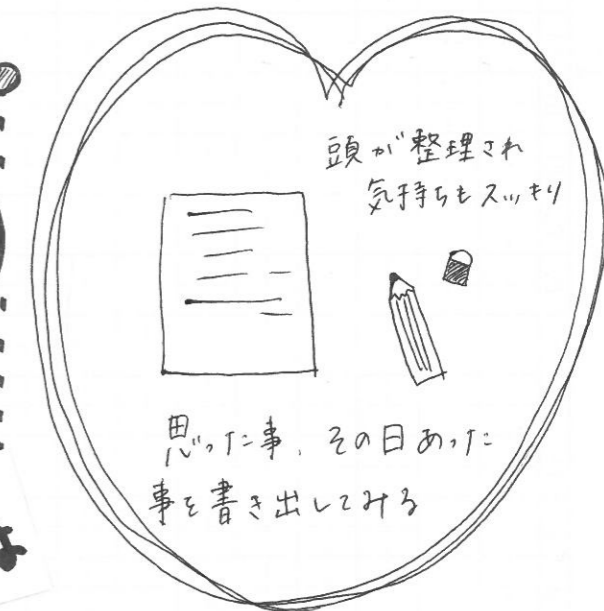 頭が整理され
気持ちもスッキリ
思った事、その日あった
事を書き出してみる